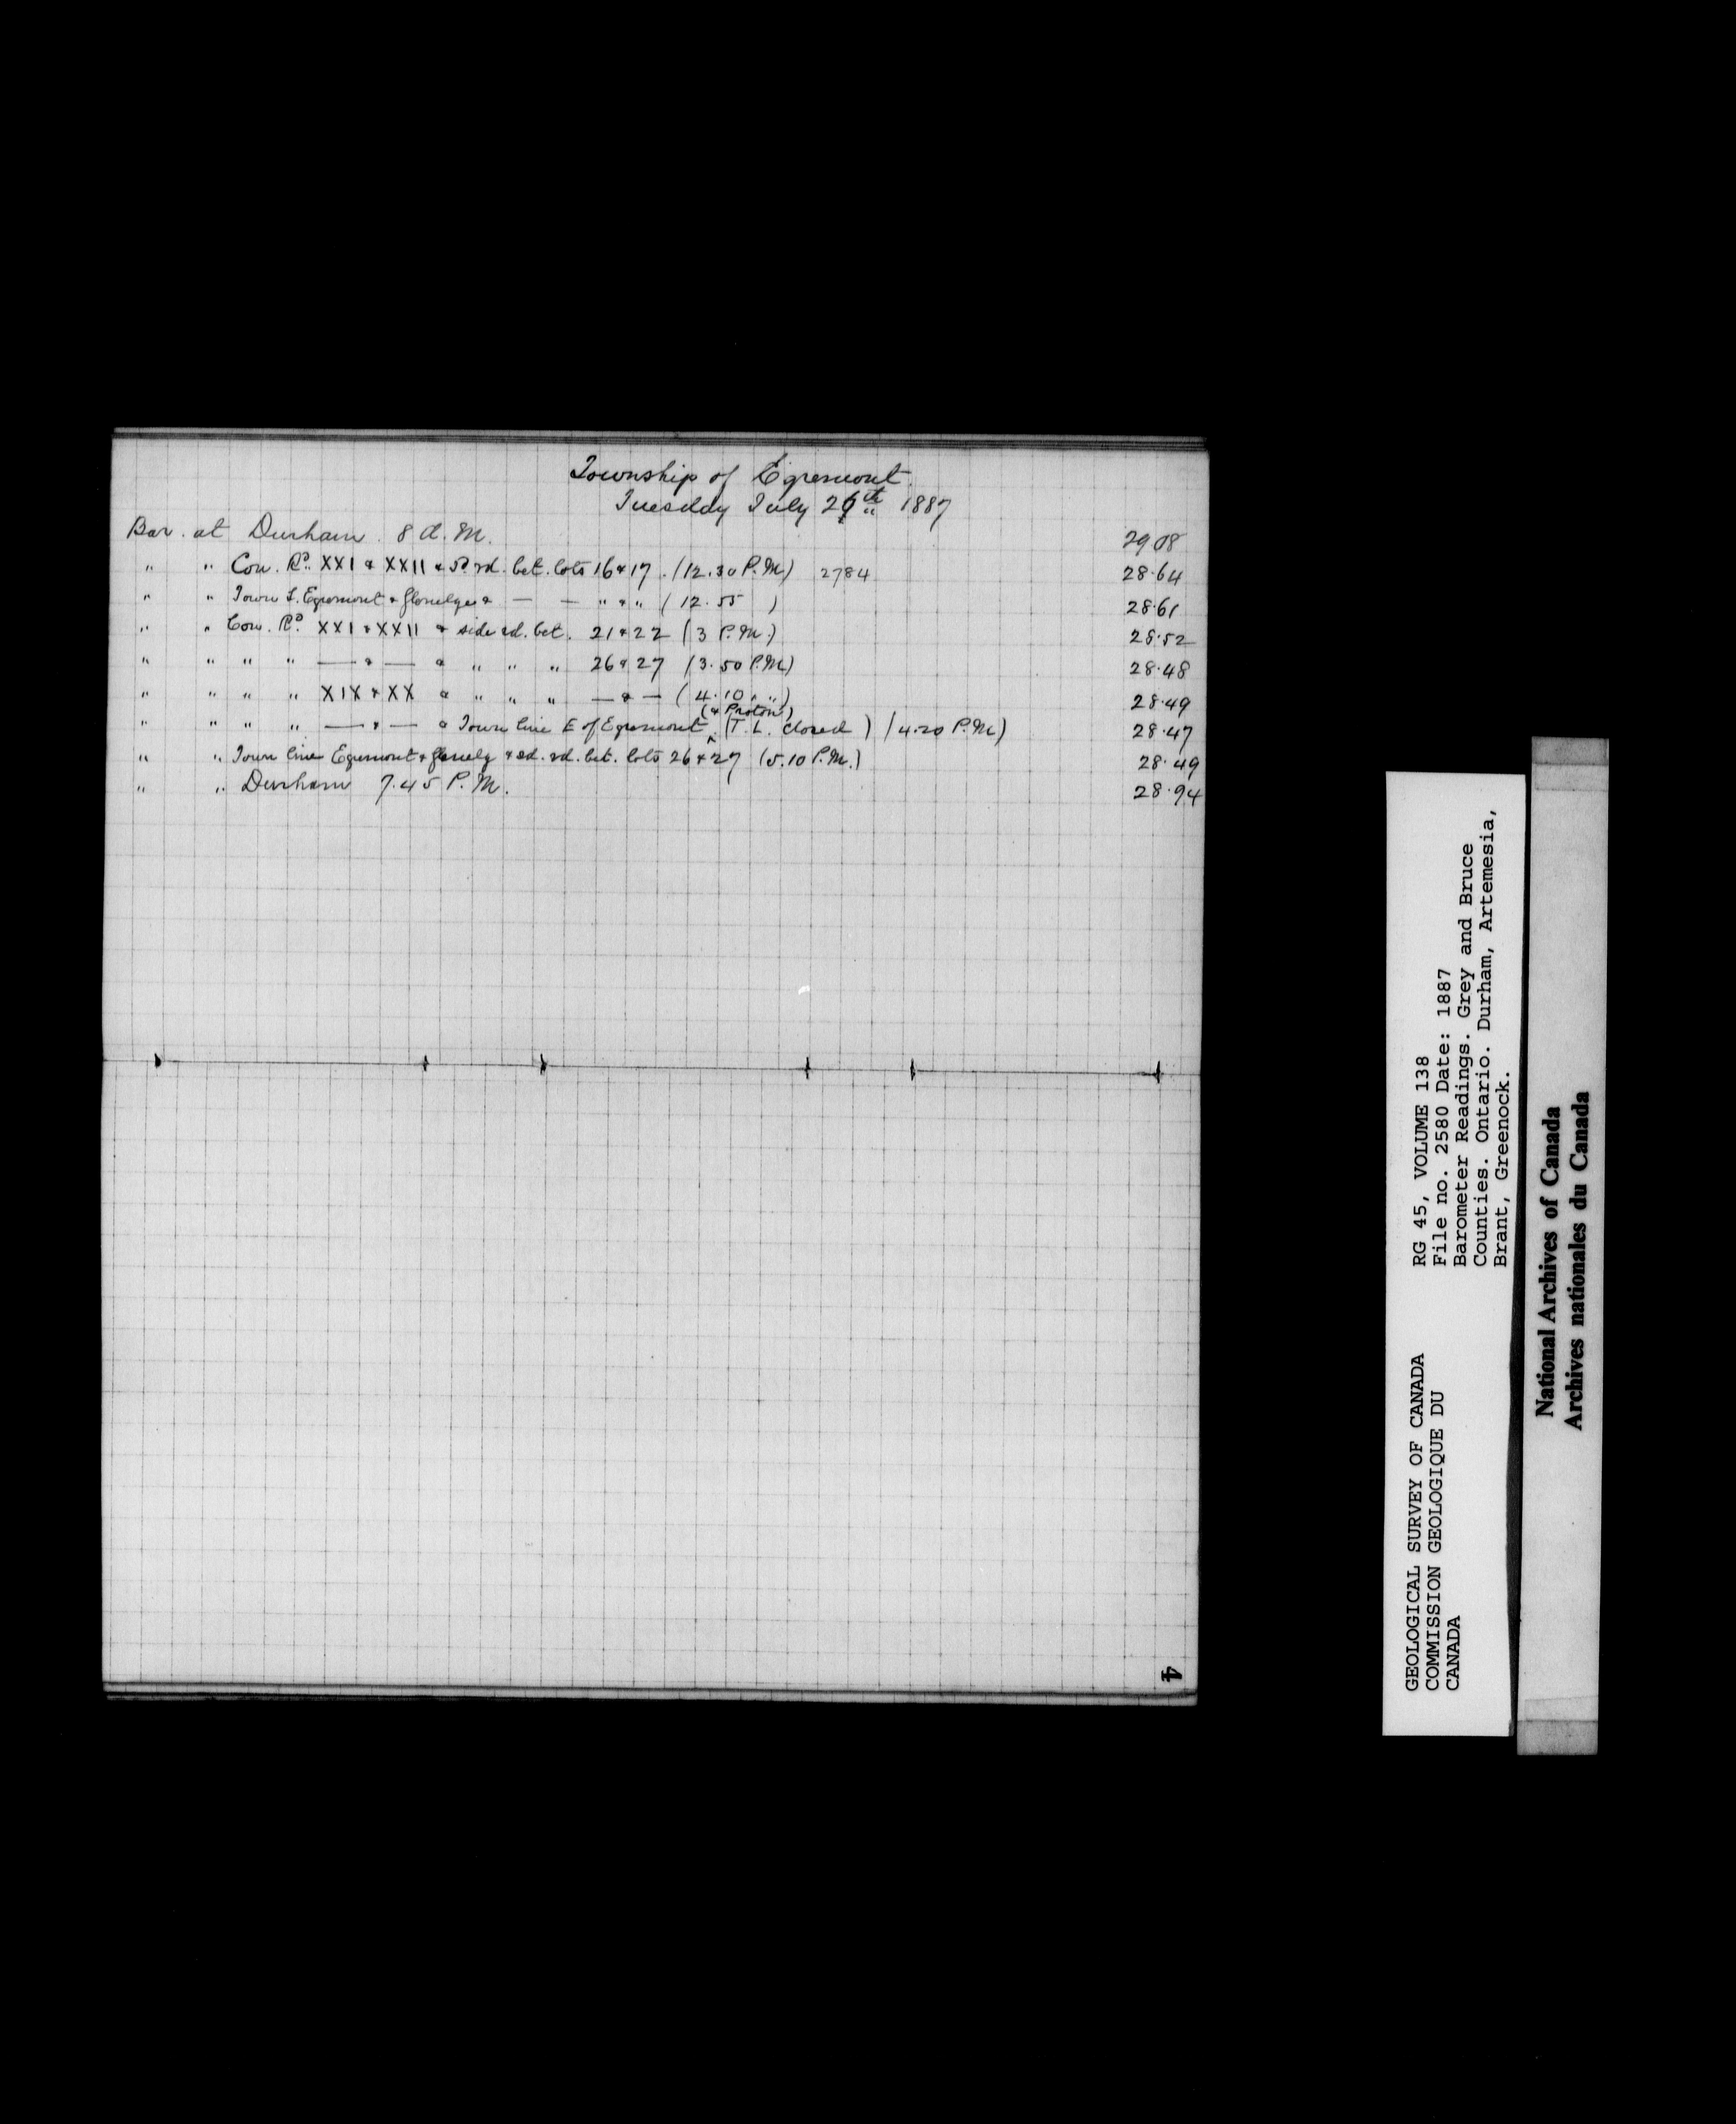 Township of Egremont.
Tuesday July 26th 1887
Bar. at Durham. 8 A.M. 29 08
" " Con. Rd. XXI & XXII & Sd. rd. bet. lots 16 & 17. (12.30 P.M) 2784 28.64
" " Town L. Egremont & Glenelg & — — " & " (12.55 ) 28.61
" " Con. Rd. XXI & XXII & side rd. bet. 21 & 22 (3 P.M.) 28.52
" " " " — & — & " " " 26 & 27 (3.50 P.M) 28.48
" " " " XIX & XX & " " " — & — (4.10 " ") 28.49
(& Proton)
" " " " — & — & Town line E of Egremont ^ (T.L. closed) (4.20 P.M) 28.47
" " Town line Egremont & Glenelg & sd. rd. bet. lots 26 & 27 (5.10 P.M.) 28.49
" " Durham 7.45 P.M. 28.94
4
GEOLOGICAL SURVEY OF CANADA
COMMISSION GEOLOGIQUE DU
CANADA
RG 45, VOLUME 138
File no. 2580 Date: 1887
Barometer Readings. Grey and Bruce
Counties. Ontario. Durham, Artemesia,
Brant, Greenock.
National Archives of Canada
Archives nationales du Canada